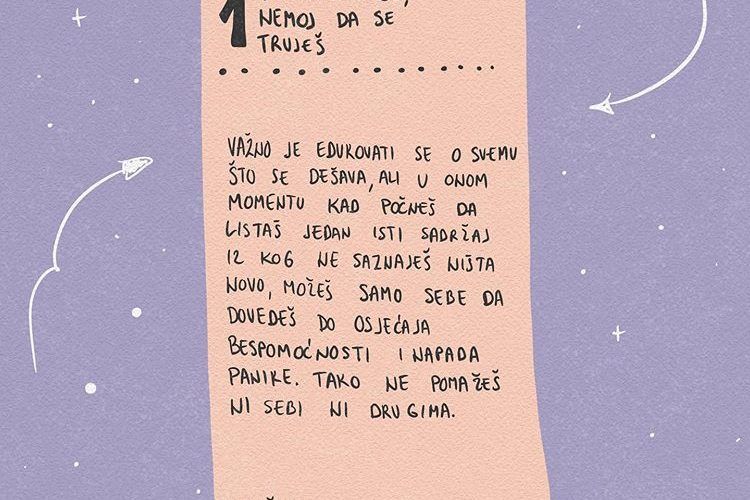 1
NEMOJ DA SE
TRUJEŠ
VAŽNO JE EDUKOVATI SE O SVEMU
ŠTO SE DEŠAVA, ALI U ONOM
MOMENTU KAD POČNEŠ DA
LISTAŠ JEDAN ISTI SADRŽAJ
IZ KOG NE SAZNAJEŠ NIŠTA
NOVO, MOŽEŠ SAMO SEBE DA
DOVEDEŠ DO OSJEĆAJA
BESPOMOĆNOSTI I NAPADA
PANIKE. TAKO NE POMAŽEŠ
NI SEBI NI DRUGIMA.